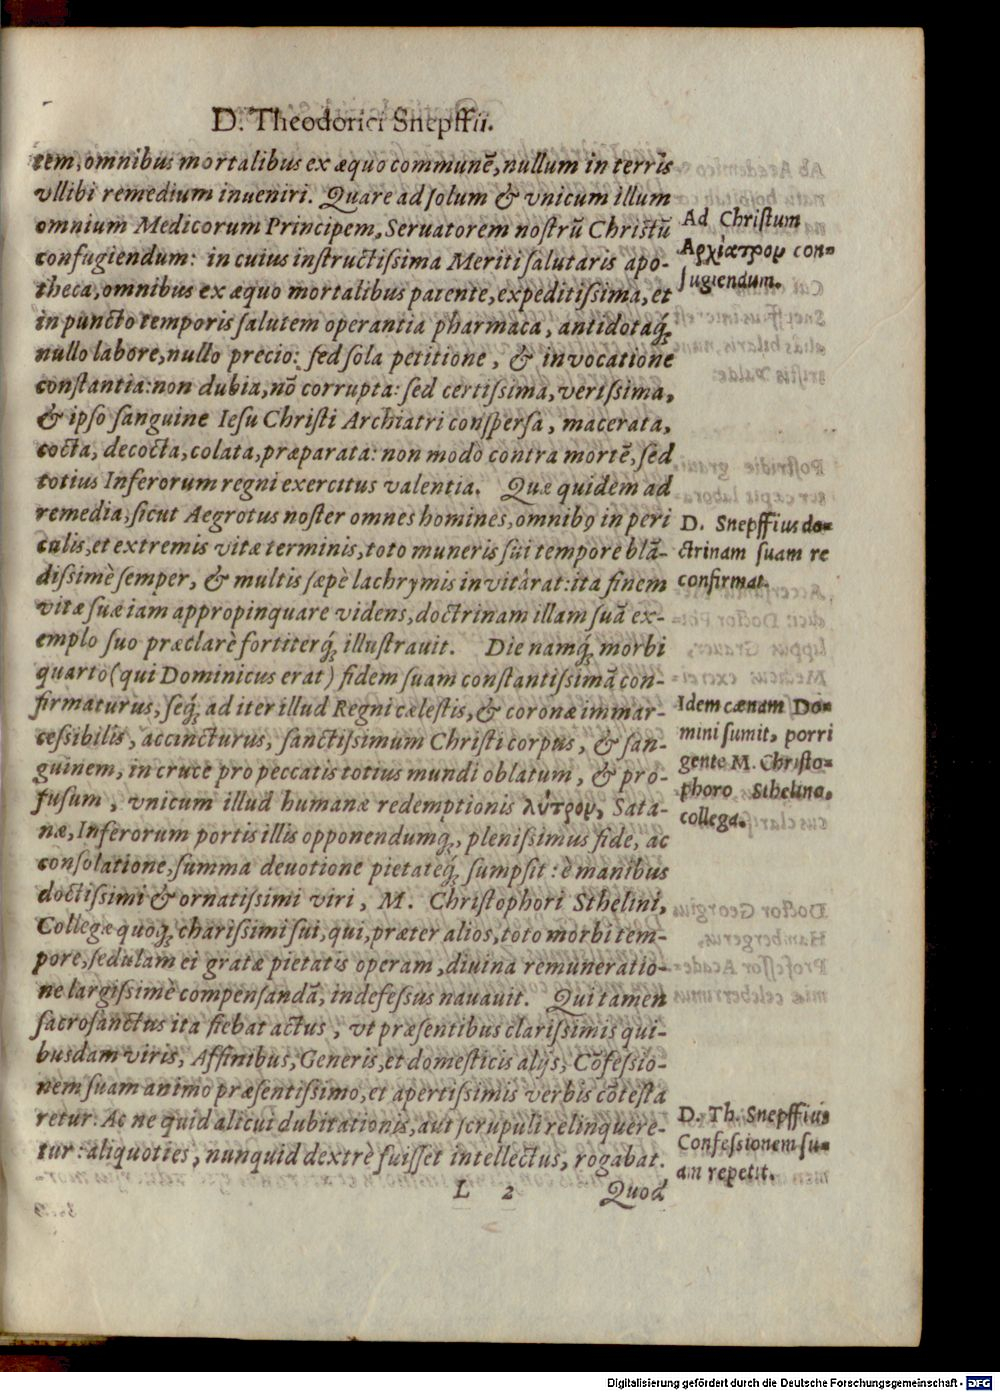 D. Theodorici Snepffii.
tem, omnibus mortalibus ex æquo communē, nullum in terris
vllibi remedium inueniri. Quare ad solum & vnicum illum
omnium Medicorum Principem, Seruatorem nostrū Christū
confugiendum: in cuius instructissima Meriti salutaris apo-
theca, omnibus ex æquo mortalibus patente, expeditissima, et
in puncto temporis salutem operantia pharmaca, antidotaq́;
nullo labore, nullo precio: sed sola petitione, & invocatione
constantia: non dubia, nō corrupta: sed certissima, verissima,
& ipso sanguine Iesu Christi Archiatri conspersa, macerata,
cocta, decocta, colata, præparata: non modò contra mortē, sed
totius Inferorum regni exercitus valentia. Quæ quidem ad
remedia, sicut Aegrotus noster omnes homines, omnibꝰ in peri
culis, et extremis vitæ terminis, toto muneris sui tempore blā-
dissimè semper, & multis sæpè lachrymis invitârat: ita finem
vitæ suæ iam appropinquare videns, doctrinam illam suā ex-
emplo suo præclarè fortiterq́; illustrauit. Die namq́; morbi
quarto (qui Dominicus erat) fidem suam constantissimā con-
firmaturus, seq́; ad iter illud Regni cælestis, & coronæ immar-
cessibilis, accincturus, sanctissimum Christi corpus, & san-
guinem, in cruce pro peccatis totius mundi oblatum, & pro-
fusum, vnicum illud humanæ redemptionis λύτρον, Sata-
næ, Inferorum portis illis opponendumq́;, plenissimus fide, ac
consolatione, summa deuotione pietateq́; sumpsit: è manibus
doctissimi & ornatissimi viri, M. Christophori Sthelini,
Collegæ quoq; charissimi sui, qui, præter alios, toto morbi tem-
pore, sedulam ei gratæ pietatis operam, diuina remuneratio-
ne largissimè compensandā, indefessus nauauit. Qui tamen
sacrosanctus ita fiebat actus, vt præsentibus clarissimis qui-
busdam viris, Affinibus, Generis, et domesticis alijs, Cōfessio-
nem suam animo præsentissimo, et apertissimis verbis cōtesta
retur: Ac ne quid alicui dubitationis, aut scrupuli relinquere-
tur: aliquoties, nunquid dextrè fuisset intellectus, rogabat.
L 2 Quod
Ad Christum
Αρχίατρον con-
fugiendum.
D. Snepffius do-
ctrinam suam re
confirmat.
Idem cænam Do-
mini sumit, porri
gente M. Christo-
phoro Sthelino,
collega.
D. Th. Snepffius
Confessionem su-
am repetit.
Digitalisierung gefördert durch die Deutsche Forschungsgemeinschaft - DFG